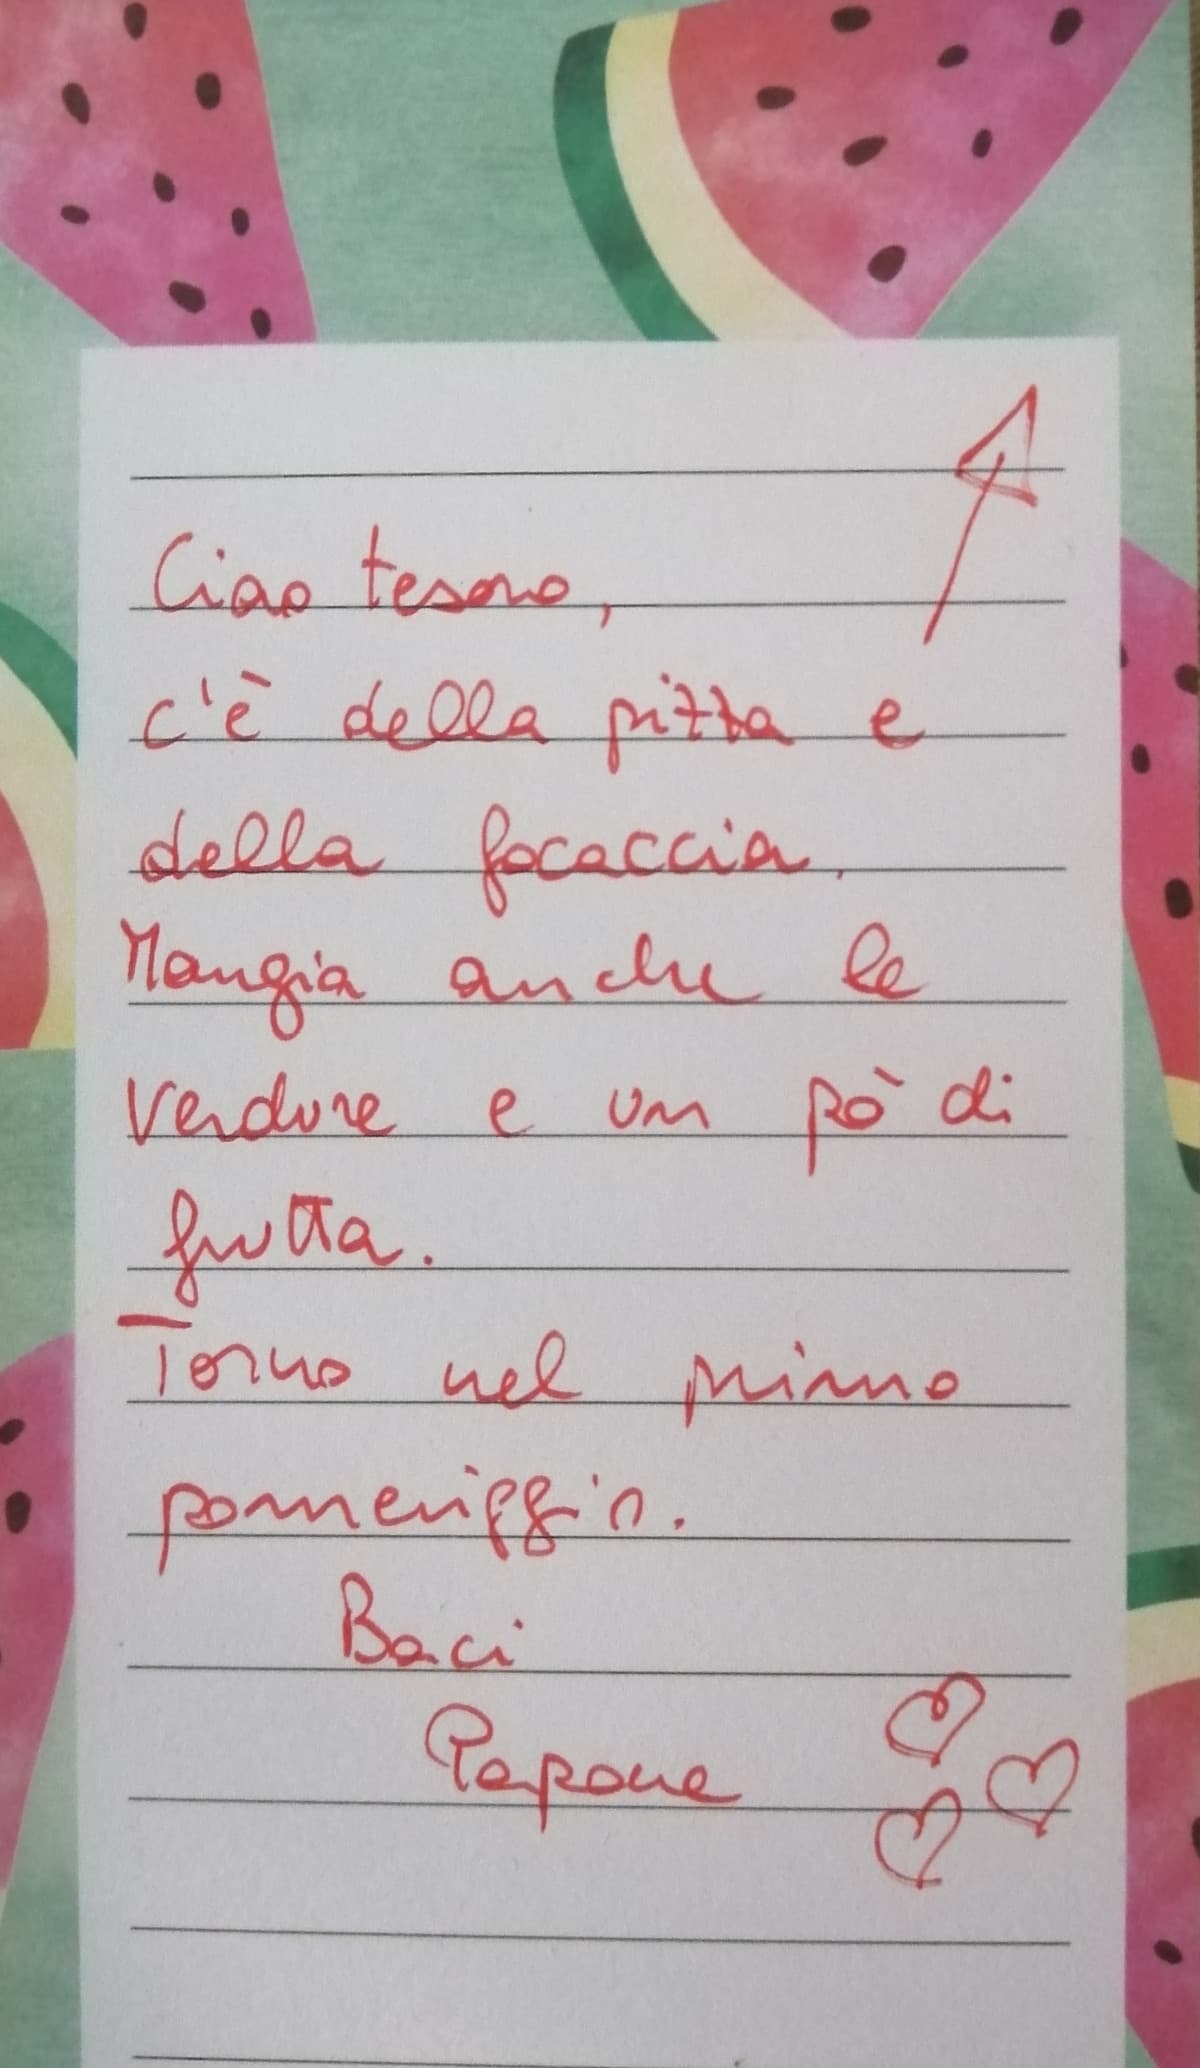 Ciao tesoro,
c'è della pizza e
della focaccia.
Mangia anche le
verdure e un pò di
frutta.
Torno nel primo
pomeriggio.
Baci
Papone